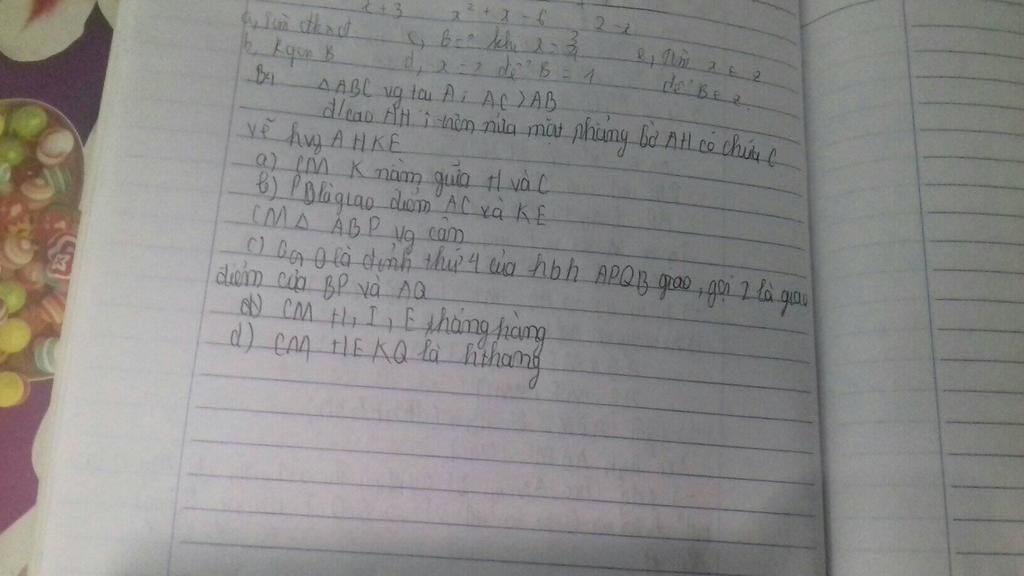 x+3 x² + x - 6 2-x
b, Rgọn B d, x = ? để B = 1 để B ∈ Z
B, ΔABC vg tại A; AC > AB
đ/cao AH; trên nửa mặt phẳng bờ AH có chứa C
vẽ hvg AHKE
a) CM K nằm giữa H và C
b) P là giao điểm AC và KE
CM Δ ABP vg cân
c) Gọi Q là đỉnh thứ 4 của hbh APQB giao, gọi I là giao
điểm của BP và AQ
CM H, I, E thẳng hàng
d) CM HEKQ là hthang